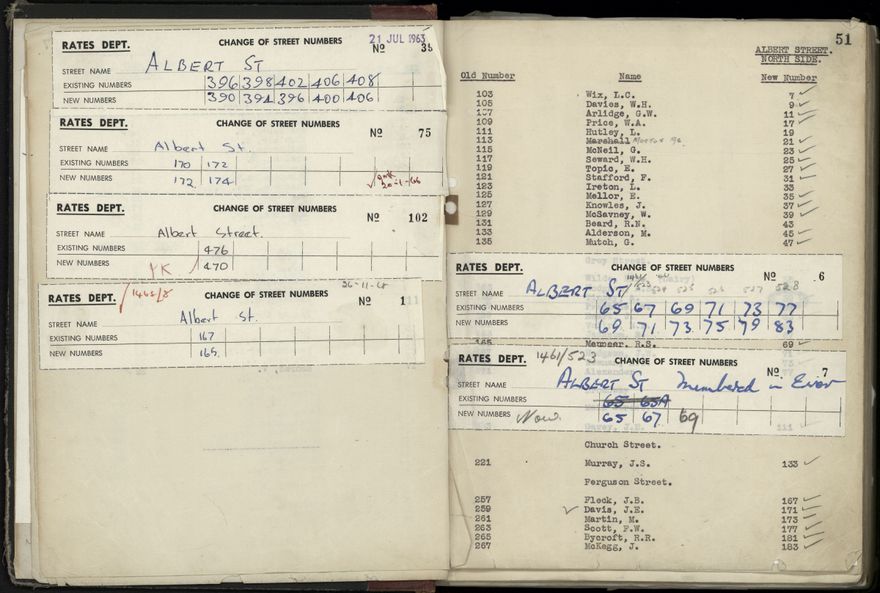 21 JUL 1963
RATES DEPT. CHANGE OF STREET NUMBERS No 35
STREET NAME ALBERT ST
EXISTING NUMBERS 396 398 402 406 408
NEW NUMBERS 390 394 396 400 406
RATES DEPT. CHANGE OF STREET NUMBERS No 75
STREET NAME Albert St.
EXISTING NUMBERS 170 172
NEW NUMBERS 172 174
20-1-66
RATES DEPT. CHANGE OF STREET NUMBERS No 102
STREET NAME Albert Street.
EXISTING NUMBERS 476
NEW NUMBERS 470
26-11-68
RATES DEPT. 1465/8 CHANGE OF STREET NUMBERS No 1
STREET NAME Albert St.
EXISTING NUMBERS 167
NEW NUMBERS 165.
51
ALBERT STREET.
NORTH SIDE.
Old Number Name New Number
103 Wix, L.C. 7
105 Davies, W.H. 9
107 Arlidge, G.W. 11
109 Price, W.A. 17
111 Hutley, L. 19
113 Marshall 21
115 McNeil, G. 23
117 Seward, W.H. 25
119 Topic, E. 27
121 Stafford, F. 31
123 Ireton, L. 33
125 Mellor, E. 35
127 Knowles, J. 37
129 McSavney, W. 39
131 Beard, R.N. 43
133 Alderson, M. 45
135 Mutch, G. 47
RATES DEPT. CHANGE OF STREET NUMBERS No 6
STREET NAME ALBERT ST
EXISTING NUMBERS 65 67 69 71 73 77
NEW NUMBERS 69 71 73 75 79 83
165 R.S. 69
RATES DEPT. 1461/523 CHANGE OF STREET NUMBERS No. 7
STREET NAME ALBERT ST Numbered in Error
EXISTING NUMBERS 65 65A
NEW NUMBERS Now 65 67 69
Church Street.
221 Murray, J.S. 133
Ferguson Street.
257 Fleck, J.B. 167
259 Davis, J.E. 171
261 Martin, M. 173
263 Scott, F.W. 177
265 Bycroft, R.R. 181
267 McKegg, J. 183